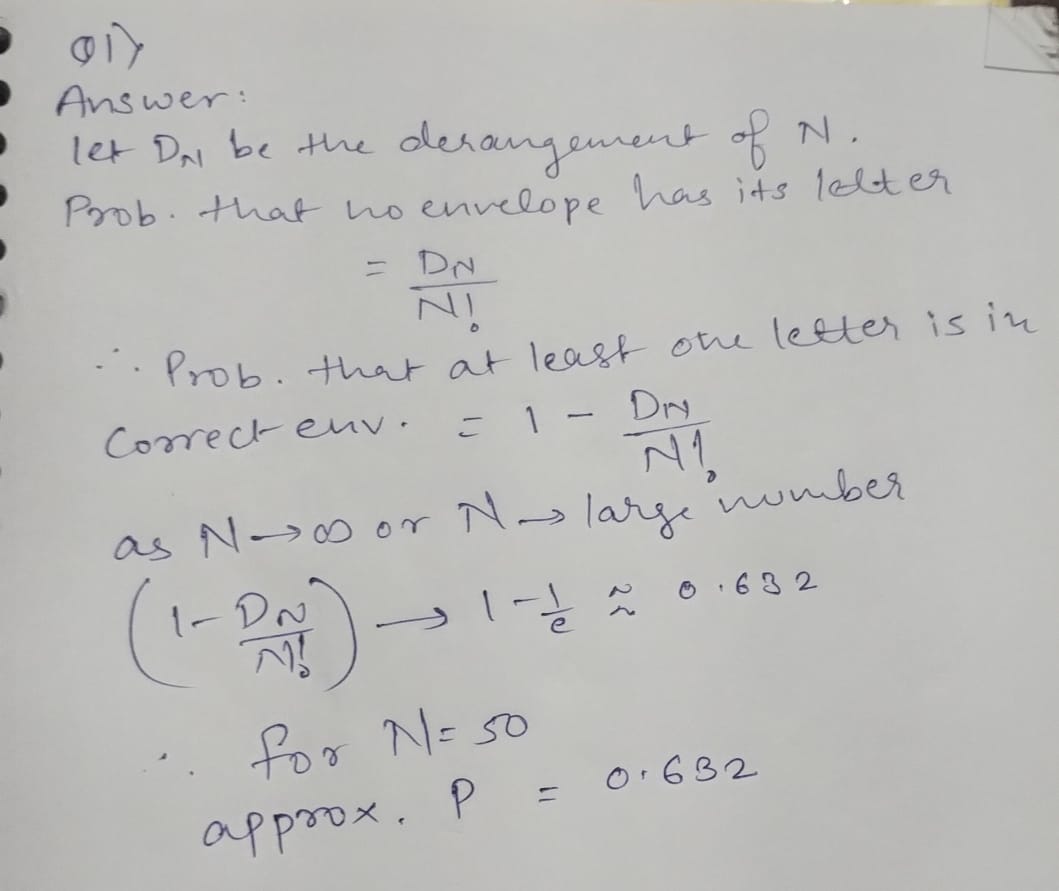 Q1)
Answer:
let D_N be the derangement of N.
Prob. that no envelope has its letter
= D_N / N!
∴ Prob. that at least one letter is in
Correct env. = 1 - D_N / N!
as N → ∞ or N → large number
(1 - D_N / N!) → 1 - 1/e ≈ 0.632
∴ for N = 50
approx. P = 0.632